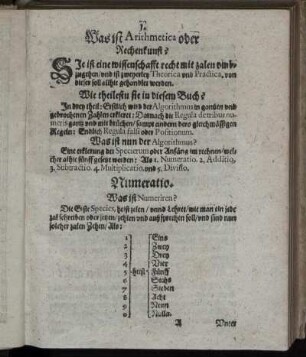 1.
Was ist Arithmetica oder
Rechenkunst?
SJe ist eine wissenschafft recht mit zalen vmb
zugehen/ vnd ist zweyerley Theorica vnd Practica, von
dieser soll allhie gehandlet werden.
Wie theilestu sie in diesem Buch?
In drey theil: Erstlich wird der Algorithmus in gantzen vnd
gebrochenen Zahlen erkleret: Darnach die Regula detribus nu-
meris gantz vnd mit brüchen/ sampt andern dero gleichmässigen
Regeln: Endlich Regula falsi oder Positionum.
Was ist nun der Algorithmus?
Eine erklerung der Specierum oder Anfäng im rechnen/ wel-
cher alhie fünff gesetzt werden: Als 1. Numeratio. 2. Additio,
3. Subtractio. 4. Multiplicatio, vnd 5. Divisio.
Numeratio.
Was ist Numeriren?
Die Erste Species, heist zelen/ vnnd Lehret/ wie man ein jede
zal schreiben oder setzen/ zehlen vnd außsprechen soll/ vnd sind nun
solcher zalen Zehen/ Als:
1 Eins
2 Zwey
3 Drey
4 Vier
5 heist Fünff
6 Sechs
7 Sieben
8 Acht
9 Neun
0 Nulla.
A